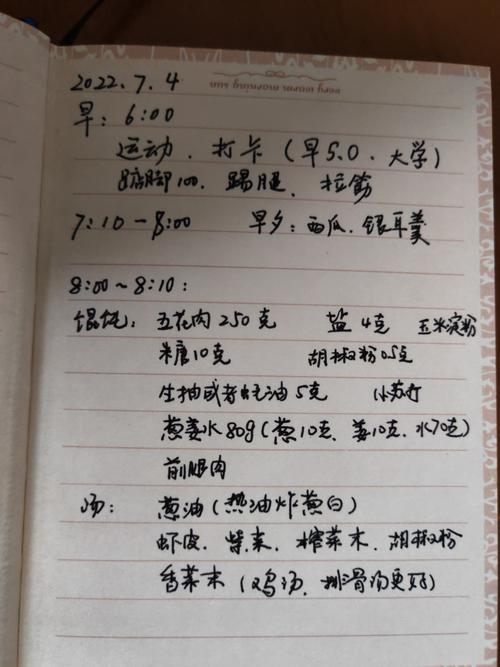 2022.7.4
早：6:00
运动．打卡（早5.0．大学）
踮脚100．踢腿．拉筋
7:10—8:00 早夕：西瓜．银耳羹
8:00～8:10：
馄饨：五花肉250克 盐4克 玉米淀粉
米糖10克 胡椒粉0.5克
生抽或者蚝油5克 小苏打
葱姜水80g（葱10克、姜10克、水70克）
前腿肉
汤：葱油（热油炸葱白）
虾皮．紫菜．榨菜末．胡椒粉
香菜末（鸡汤、排骨汤更好）